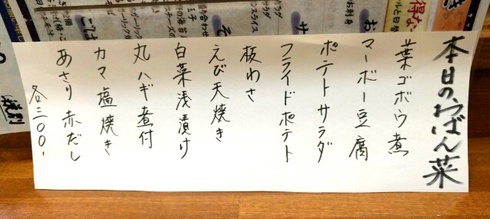 本日のおばん菜
葉ゴボウ煮
マーボー豆腐
ポテトサラダ
フライドポテト
板わさ
えび天焼き
白菜浅漬け
丸ハギ煮付
カマ塩焼き
あさり赤だし
各三〇〇、